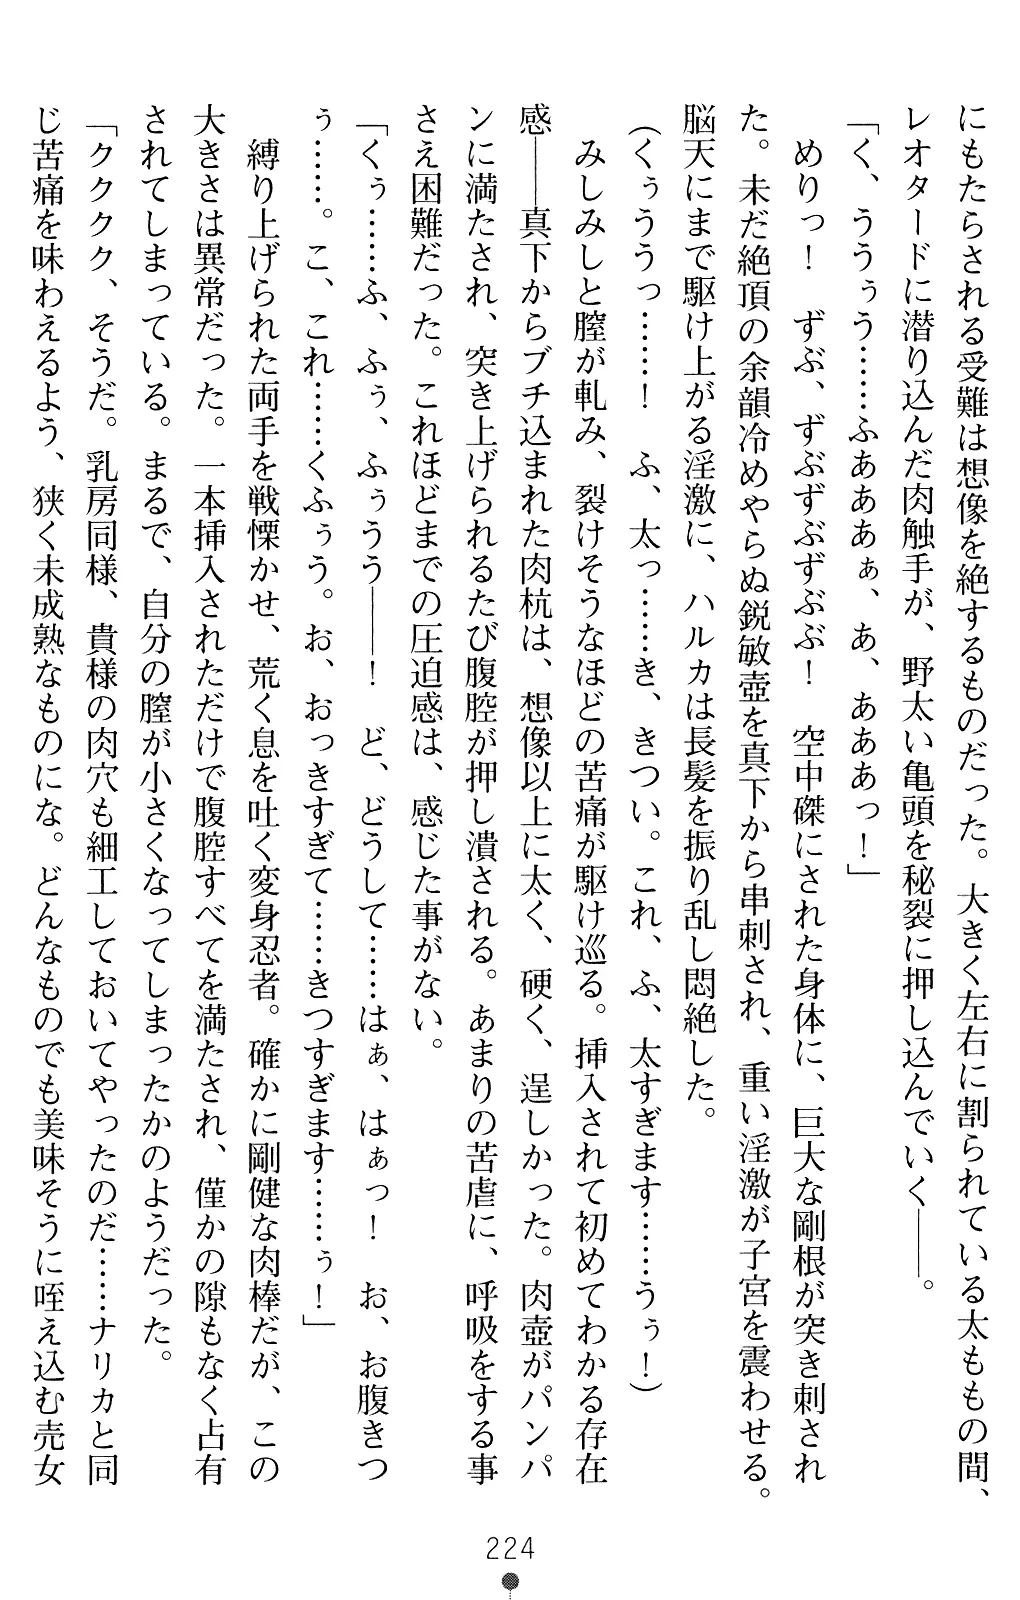 にもたらされる受難は想像を絶するものだった。大きく左右に割られている太ももの間、
レオタードに潜り込んだ肉触手が、野太い亀頭を秘裂に押し込んでいく――。
「く、ううぅう……ふあああぁ、あ、あああっ！」
めりっ！　ずぶ、ずぶずぶずぶぶ！　空中磔にされた身体に、巨大な剛根が突き刺され
た。未だ絶頂の余韻冷めやらぬ鋭敏壺を真下から串刺され、重い淫激が子宮を震わせる。
脳天にまで駆け上がる淫激に、ハルカは長髪を振り乱し悶絶した。
（くぅううっ……！　ふ、太っ……き、きつい。これ、ふ、太すぎます……うぅ！）
みしみしと膣が軋み、裂けそうなほどの苦痛が駆け巡る。挿入されて初めてわかる存在
感――真下からブチ込まれた肉杭は、想像以上に太く、硬く、逞しかった。肉壺がパンパ
ンに満たされ、突き上げられるたび腹腔が押し潰される。あまりの苦虐に、呼吸をする事
さえ困難だった。これほどまでの圧迫感は、感じた事がない。
「くぅ……ふ、ふぅ、ふぅうう――！　ど、どうして……はぁ、はぁっ！　お、お腹きつ
ぅ……。こ、これ……くふぅう。お、おっきすぎて……きつすぎます……ぅ！」
縛り上げられた両手を戦慄かせ、荒く息を吐く変身忍者。確かに剛健な肉棒だが、この
大きさは異常だった。一本挿入されただけで腹腔すべてを満たされ、僅かの隙もなく占有
されてしまっている。まるで、自分の膣が小さくなってしまったかのようだった。
「クククク、そうだ。乳房同様、貴様の肉穴も細工しておいてやったのだ……ナリカと同
じ苦痛を味わえるよう、狭く未成熟なものにな。どんなものでも美味そうに咥え込む売女
224